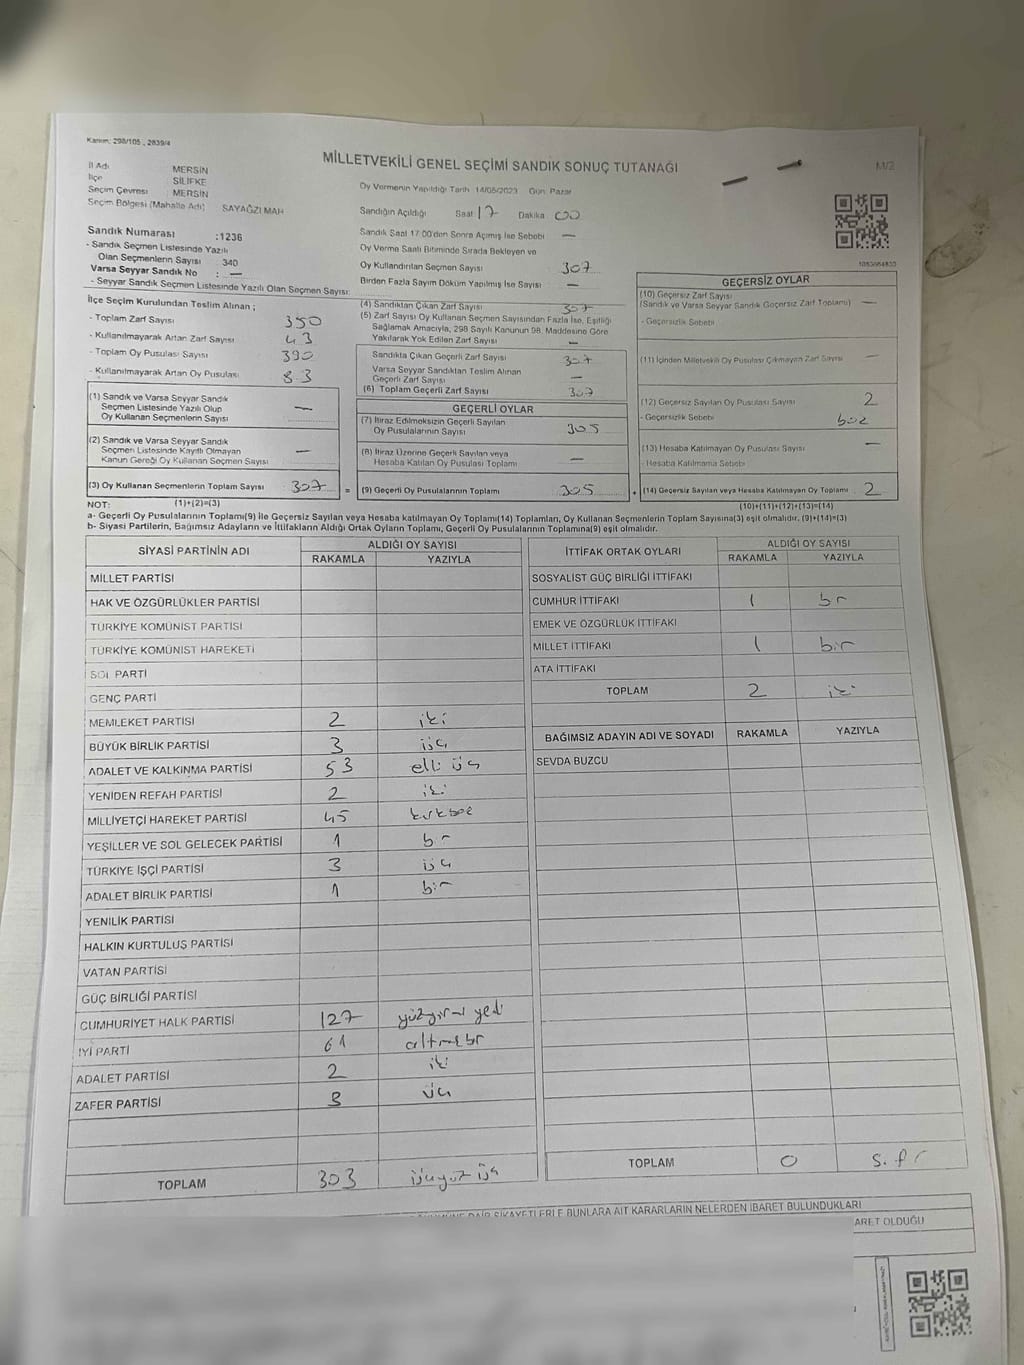 Kanun: 298/105 , 2839/4
MİLLETVEKİLİ GENEL SEÇİMİ SANDIK SONUÇ TUTANAĞI
M/2
İl Adı MERSİN
İlçe SİLİFKE
Seçim Çevresi MERSİN
Seçim Bölgesi (Mahalle Adı) SAYAĞZI MAH
Oy Vermenin Yapıldığı Tarih 14/05/2023 Gün Pazar
Sandığın Açıldığı Saat 17 Dakika 00
Sandık Saat 17:00'den Sonra Açılmış İse Sebebi —
Oy Verme Saati Bitiminde Sırada Bekleyen ve
Oy Kullandırılan Seçmen Sayısı 307
Birden Fazla Sayım Döküm Yapılmış İse Sayısı —
Sandık Numarası :1236
- Sandık Seçmen Listesinde Yazılı
Olan Seçmenlerin Sayısı : 340
Varsa Seyyar Sandık No : —
- Seyyar Sandık Seçmen Listesinde Yazılı Olan Seçmen Sayısı:
İlçe Seçim Kurulundan Teslim Alınan ;
- Toplam Zarf Sayısı 350
- Kullanılmayarak Artan Zarf Sayısı 43
- Toplam Oy Pusulası Sayısı 390
- Kullanılmayarak Artan Oy Pusulası 83
(1) Sandık ve Varsa Seyyar Sandık
Seçmen Listesinde Yazılı Olup
Oy Kullanan Seçmenlerin Sayısı —
(2) Sandık ve Varsa Seyyar Sandık
Seçmen Listesinde Kayıtlı Olmayan
Kanun Gereği Oy Kullanan Seçmen Sayısı —
(3) Oy Kullanan Seçmenlerin Toplam Sayısı 307 =
(4) Sandıktan Çıkan Zarf Sayısı 307
(5) Zarf Sayısı Oy Kullanan Seçmen Sayısından Fazla İse, Eşitliği
Sağlamak Amacıyla, 298 Sayılı Kanunun 98. Maddesine Göre
Yakılarak Yok Edilen Zarf Sayısı —
Sandıkta Çıkan Geçerli Zarf Sayısı 307
Varsa Seyyar Sandıktan Teslim Alınan
Geçerli Zarf Sayısı —
(6) Toplam Geçerli Zarf Sayısı 307
GEÇERLİ OYLAR
(7) İtiraz Edilmeksizin Geçerli Sayılan
Oy Pusulalarının Sayısı 305
(8) İtiraz Üzerine Geçerli Sayılan veya
Hesaba Katılan Oy Pusulası Toplamı —
(9) Geçerli Oy Pusulalarının Toplamı 305 +
GEÇERSİZ OYLAR
(10) Geçersiz Zarf Sayısı
(Sandık ve Varsa Seyyar Sandık Geçersiz Zarf Toplamı) —
- Geçersizlik Sebebi
(11) İçinden Milletvekili Oy Pusulası Çıkmayan Zarf Sayısı —
(12) Geçersiz Sayılan Oy Pusulası Sayısı 2
- Geçersizlik Sebebi
(13) Hesaba Katılmayan Oy Pusulası Sayısı —
- Hesaba Katılmama Sebebi
(14) Geçersiz Sayılan veya Hesaba Katılmayan Oy Toplamı 2
NOT: (1)+(2)=(3)
(10)+(11)+(12)+(13)=(14)
a- Geçerli Oy Pusulalarının Toplamı(9) ile Geçersiz Sayılan veya Hesaba katılmayan Oy Toplamı(14) Toplamları, Oy Kullanan Seçmenlerin Toplam Sayısına(3) eşit olmalıdır. (9)+(14)=(3)
b- Siyasi Partilerin, Bağımsız Adayların ve İttifakların Aldığı Ortak Oyların Toplamı, Geçerli Oy Pusulalarının Toplamına(9) eşit olmalıdır.
SİYASİ PARTİNİN ADI ALDIĞI OY SAYISI
RAKAMLA YAZIYLA
MİLLET PARTİSİ
HAK VE ÖZGÜRLÜKLER PARTİSİ
TÜRKİYE KOMÜNİST PARTİSİ
TÜRKİYE KOMÜNİST HAREKETİ
SOL PARTİ
GENÇ PARTİ
MEMLEKET PARTİSİ 2 iki
BÜYÜK BİRLİK PARTİSİ 3 üç
ADALET VE KALKINMA PARTİSİ 53 elli üç
YENİDEN REFAH PARTİSİ 2 iki
MİLLİYETÇİ HAREKET PARTİSİ 45 kırkbeş
YEŞİLLER VE SOL GELECEK PARTİSİ 1 bir
TÜRKİYE İŞÇİ PARTİSİ 3 üç
ADALET BİRLİK PARTİSİ 1 bir
YENİLİK PARTİSİ
HALKIN KURTULUŞ PARTİSİ
VATAN PARTİSİ
GÜÇ BİRLİĞİ PARTİSİ
CUMHURİYET HALK PARTİSİ 127 yüzyirmi yedi
İYİ PARTİ 61 altmışbir
ADALET PARTİSİ 2 iki
ZAFER PARTİSİ 3 üç
TOPLAM 303 üçyüz üç
İTTİFAK ORTAK OYLARI ALDIĞI OY SAYISI
RAKAMLA YAZIYLA
SOSYALİST GÜÇ BİRLİĞİ İTTİFAKI
CUMHUR İTTİFAKI 1 bir
EMEK VE ÖZGÜRLÜK İTTİFAKI
MİLLET İTTİFAKI 1 bir
ATA İTTİFAKI
TOPLAM 2 iki
BAĞIMSIZ ADAYIN ADI VE SOYADI RAKAMLA YAZIYLA
SEVDA BUZCU
TOPLAM 0 sıfır
DAİR ŞİKAYETLERLE BUNLARA AİT KARARLARIN NELERDEN İBARET BULUNDUKLARI
ARET OLDUĞU